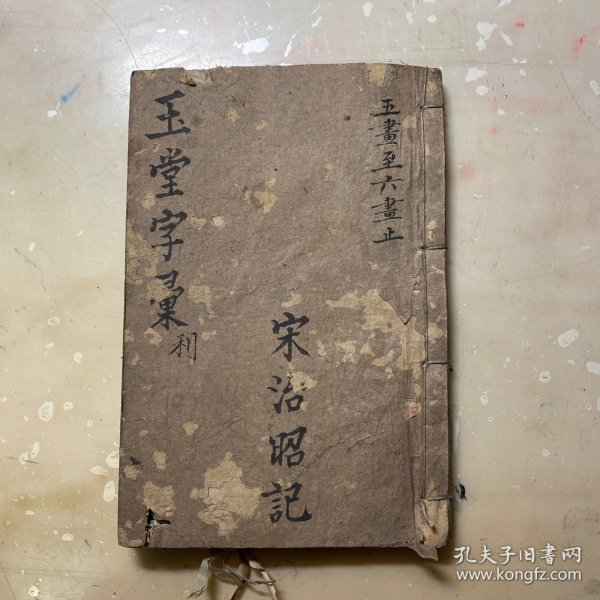 五畫至六畫止
宋治昭記
玉堂字彙
利
孔夫子旧書网
www.kongfz.com